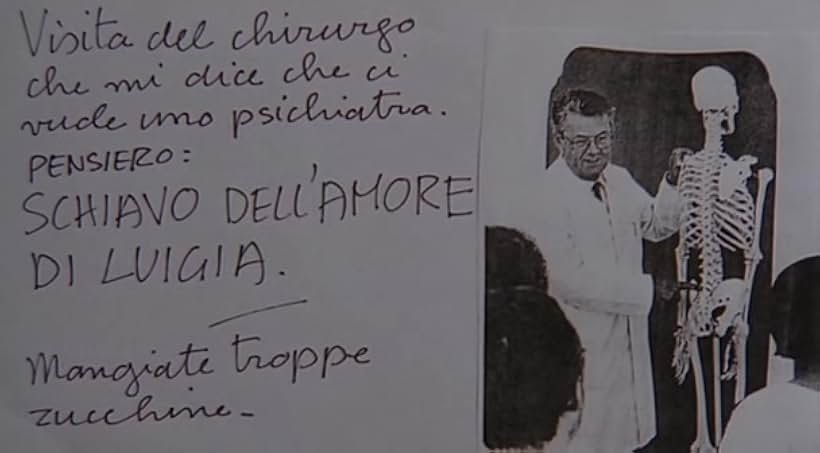 Visita del chirurgo
che mi dice che ci
vude uno psichiatra.
PENSIERO:
SCHIAVO DELL'AMORE
DI LUIGIA.
Mangiate troppe
zucchine-